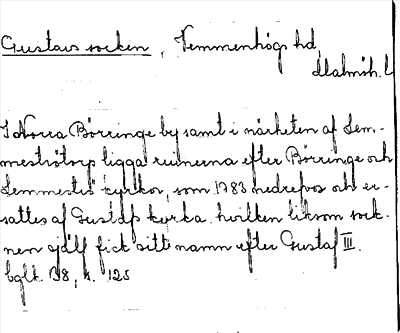 Gustavs socken, Vemmenhögs hd,
Malmöh. L
I Norra Börringe by samt i närheten af Lem-
meströtorp ligga ruinerna efter Börringe och
Lemmeströ kyrkor, som 1783 nedrefvos och er-
sattes af Gustafs kyrka hvilken liksom sock-
nen själf fick sitt namn efter Gustaf III.
bglt. B8, s. 125